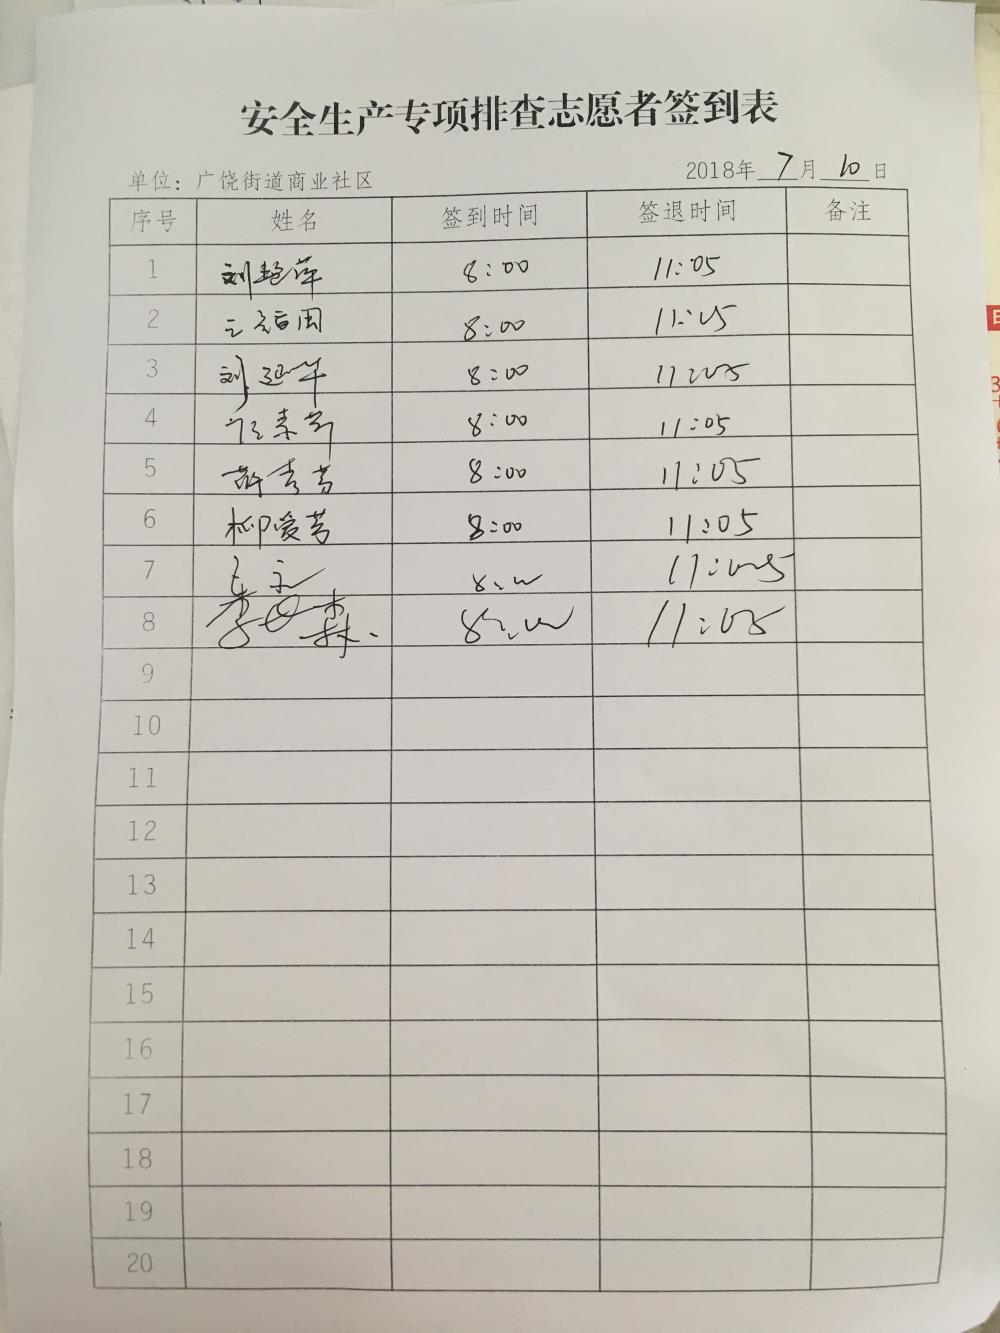 安全生产专项排查志愿者签到表
单位：广饶街道商业社区 2018年 7 月 10 日
序号 姓名 签到时间 签退时间 备注
1 刘艳萍 8:00 11:05
2 8:00 11:05
3 刘延华 8:00 11:05
4 8:00 11:05
5 薛秀芳 8:00 11:05
6 柳爱芳 8:00 11:05
7 8:00 11:05
8 8:00 11:05
9
10
11
12
13
14
15
16
17
18
19
20